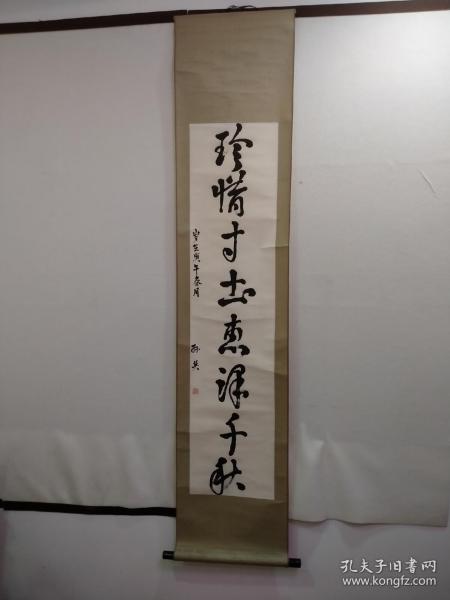 珍惜寸土惠泽千秋
岁在庚午春月
孔夫子旧书网
www.kongfz.com